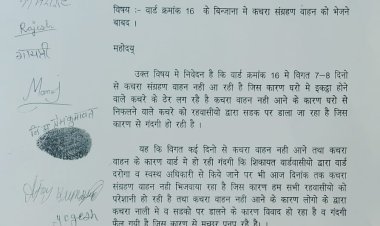 विषय :- वार्ड क्रमांक 16 के बिन्जाना मे कचरा संग्रहण वाहन को भेजने
बाबद ।
महोदय
Rajesh
गायत्री
Manoj
उक्त विषय मे निवेदन है कि वार्ड क्रमांक 16 मे विगत 7-8 दिनो
से कचरा संग्रहण वाहन नही आ रही है जिस कारण घरो मे इकट्ठा होने
वाले कचरे के ढेर लग रहें है कचरा वाहन नही आने के कारण घरो से
निकलने वाले कचरे को रहवासीयो द्वारा सडक पर डाला जा रहा है जिस
कारण से गंदगी हो रही है ।
यह कि विगत कई दिनो से कचरा वाहन नही आने तथा कचरा
वाहन के कारण वार्ड मे हो रही गंदगी कि शिकायत वार्डवासीयो द्वारा वार्ड
दरोगा व स्वस्थ अधिकारी से किये जाने पर भी आज दिनांक तक कचरा
संग्रहण वाहन नही भिजवाया रहा है जिस कारण हम सभी रहवासीयो को
परेशानी हो रही है तथा कचरा वाहन नही आने के कारण लोगो के द्वारा
कचरा नाली मे व सडको पर डालने के कारण विवाद हो रहा है व गंदगी
फैल गयी है जिस कारण से मच्छर पनप रहे है।
yogesh